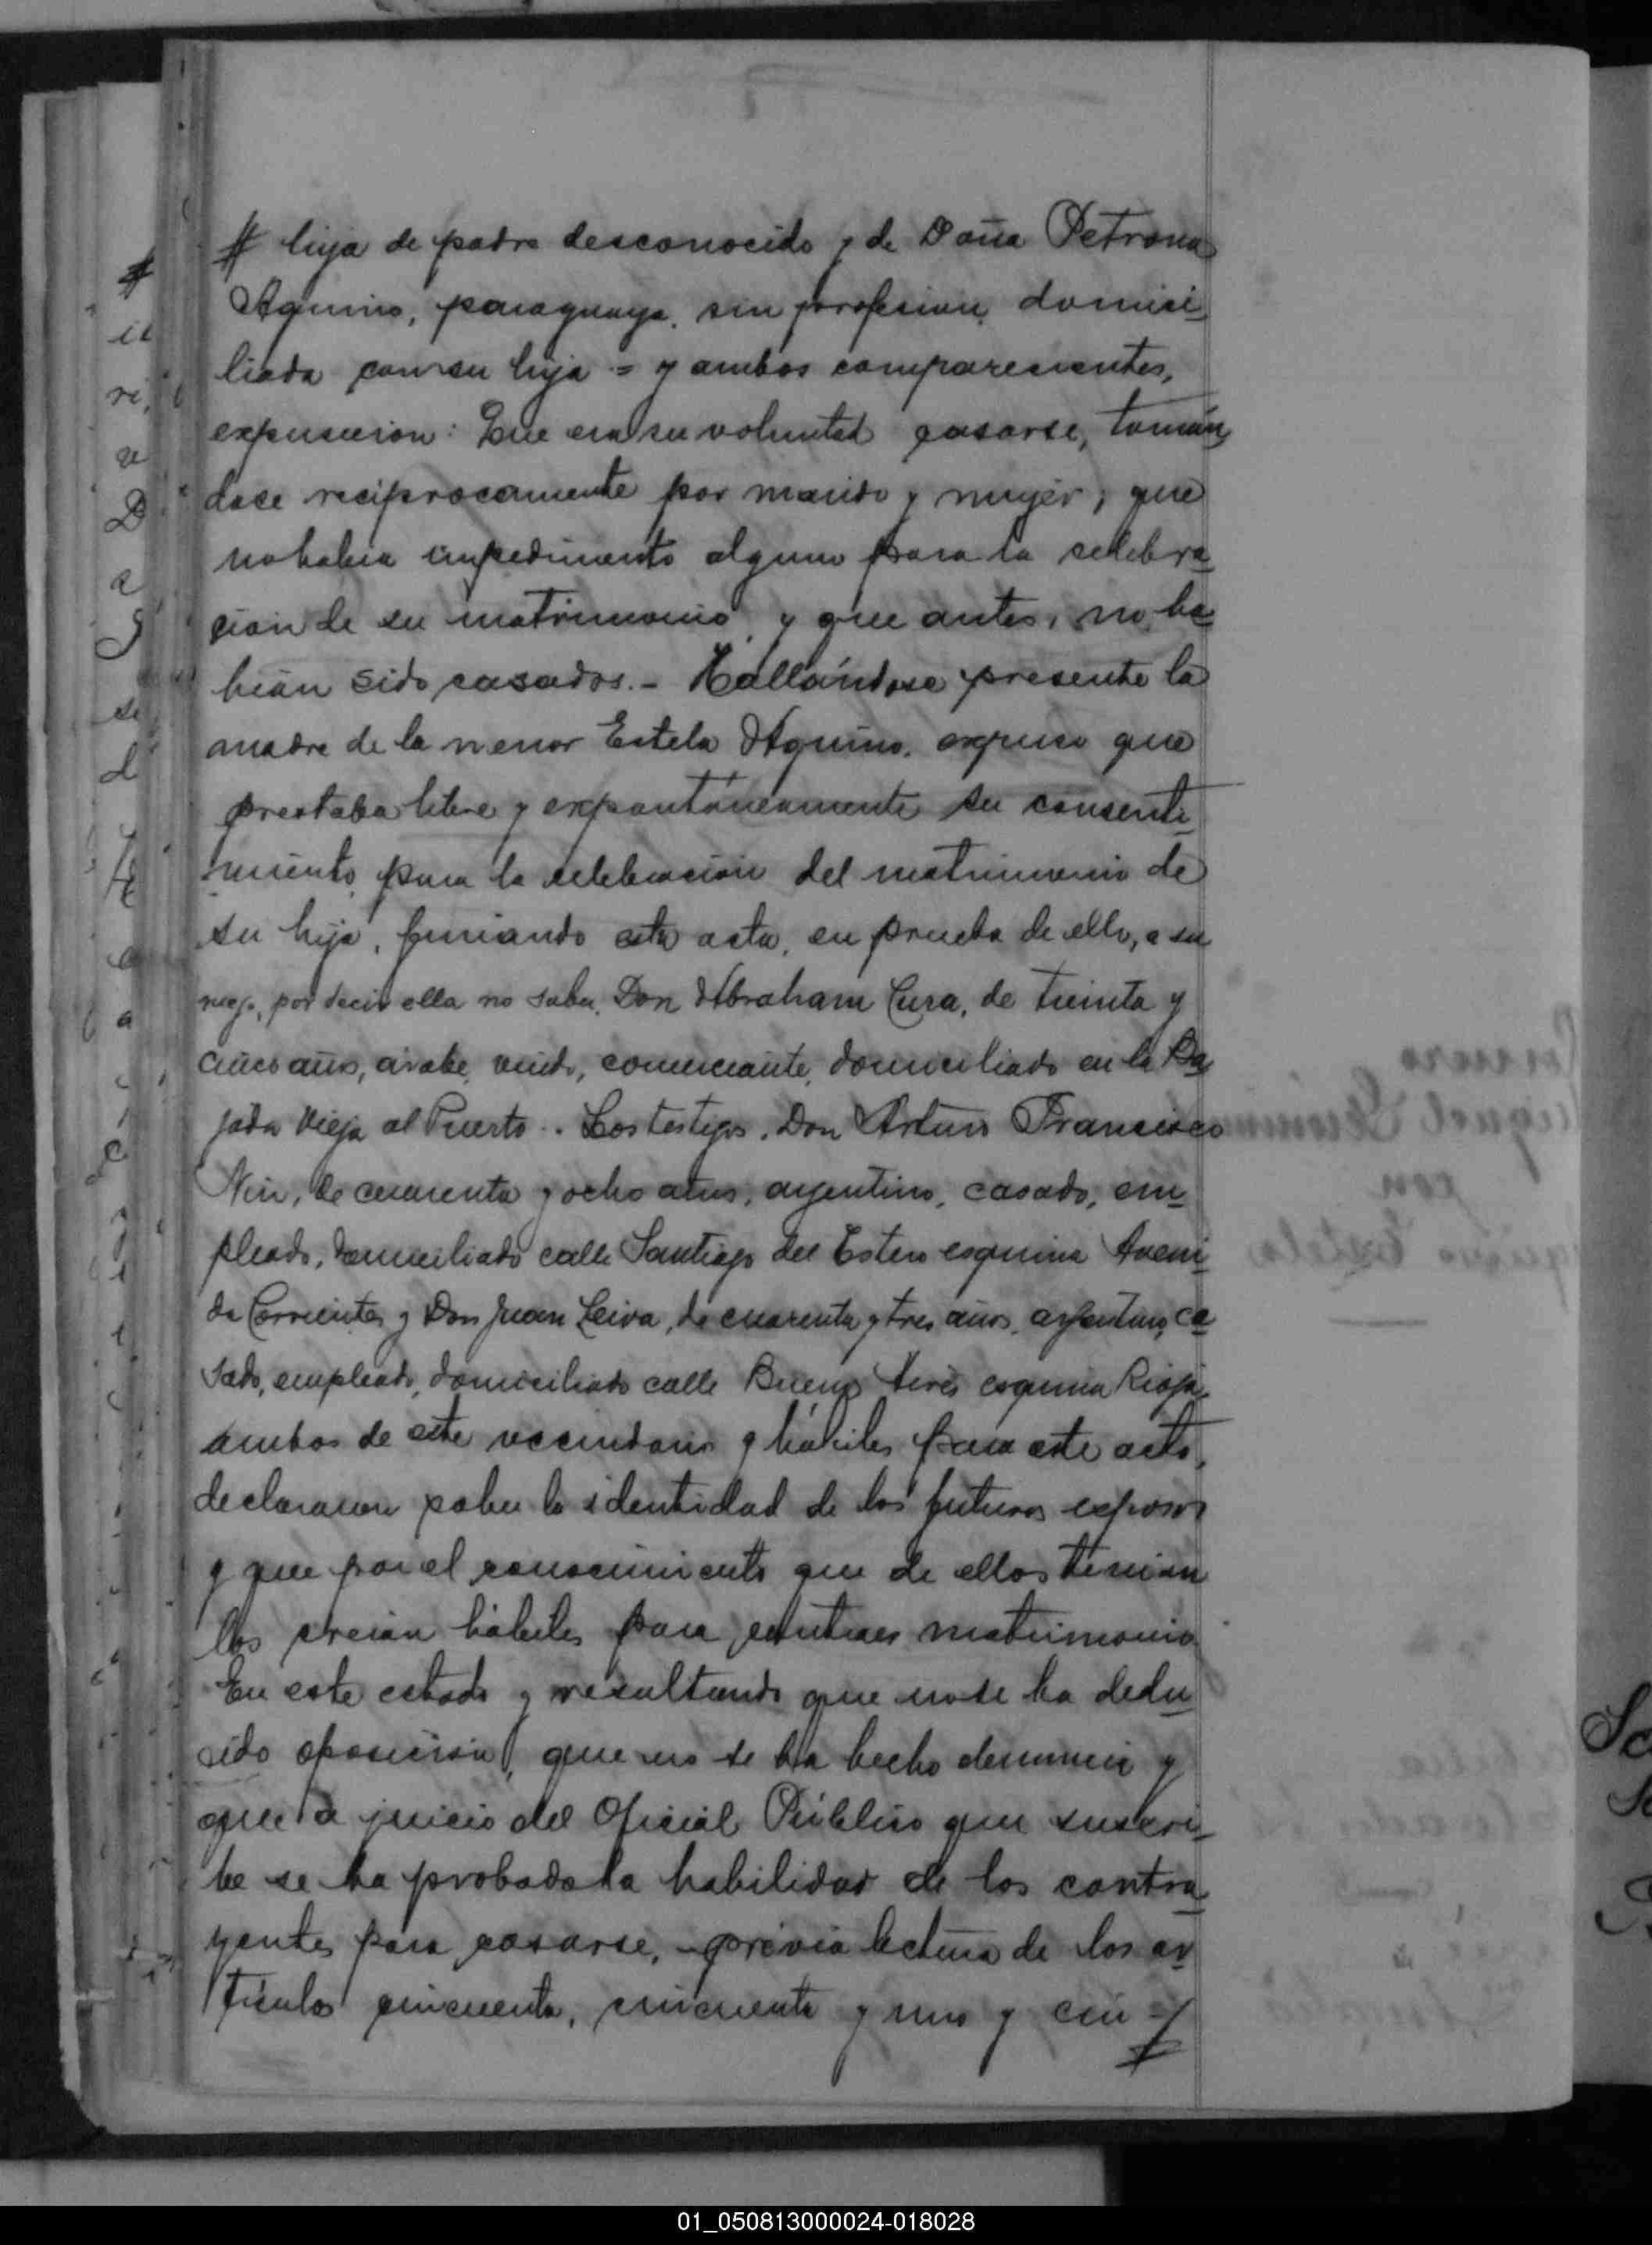 # hija de padre desconocido y de Doña Petrona
Aquino, paraguaya, sin profesion, domici_
liada con su hija = y ambos comparecientes,
expusieron: Que era su voluntad casarse, tomán_
dose reciprocamente por marido y mujer; que
no habia impedimento alguno para la celebra_
cion de su matrimonio, y que antes, no ha_
bian sido casados.- Hallándose presente la
madre de la menor Estela Aquino, expuso que
prestaba libre y expontáneamente su consenti_
miento, para la celebracion del matrimonio de
su hija, firmando esta acta, en prueba de ello, a su
ruego, por decir ella no saber, Don Abraham Cura, de treinta y
cinco años, árabe, viudo, comerciante, domiciliado en la Ba_
jada Vieja al Puerto.. Los testigos, Don Arturo Francisco
Nin, de cuarenta y ocho años, argentino, casado, em_
pleado, domiciliado calle Santiago del Estero esquina Aveni_
da Corrientes y Don Juan Leiva, de cuarenta y tres años, argentino, ca_
sado, empleado, domiciliado calle Buenos Aires esquina Rioja,
ambos de este vecindario y hábiles para este acto,
declararon saber la identidad de los futuros esposos
y que por el conocimiento que de ellos tenian
los creian hábiles para contraer matrimonio
En este estado y resultando que no se ha dedu_
cido oposicion, que no se ha hecho denuncia y
que a juicio del Oficial Público que suscri_
be se ha probado la habilidad de los contra_
yentes para casarse, previa lectura de los ar_
tículos cincuenta, cincuenta y uno y cin =#
01_050813000024-018028